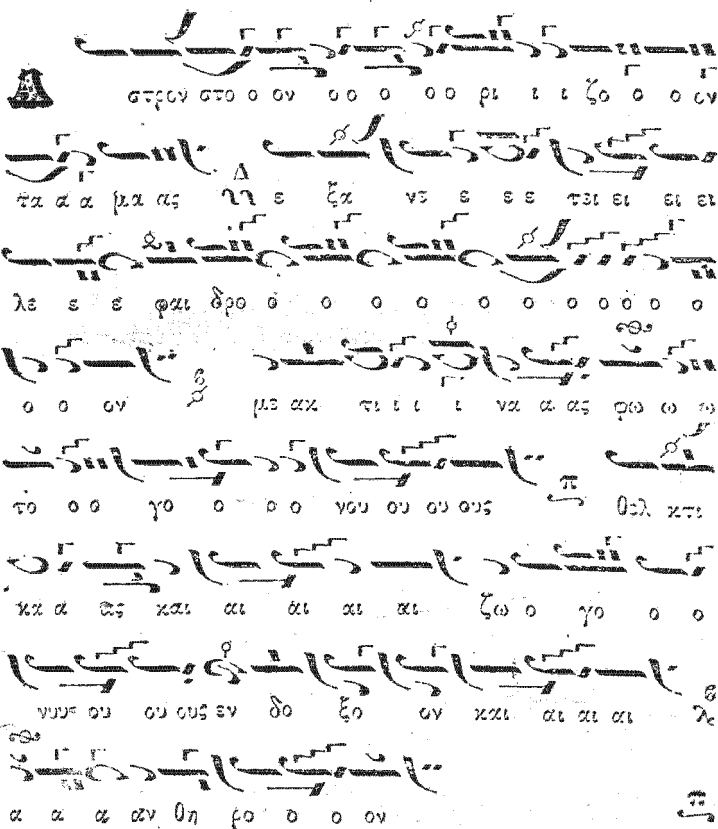 Α στρον στο ο ον ο ο ο ο ο ρι ι ι ζο ο ο ον
τα α α μα ας Δ ε ξα νε ε ε ε τει ει ει ει
λε ε ε φαι δρο ο ο ο ο ο ο ο ο ο ο ο
ο ο ον με ακ τι ι ι ι να α ας φω ω ω
το ο ο γο ο ρ ο νου ου ου ους π θελ κτι
κα α ας και αι αι αι αι ζω ο γο ο ο
νυυς ου ου ους εν δο ξο ον και αι αι αι λε
α α α αν θη ρο ο ο ον